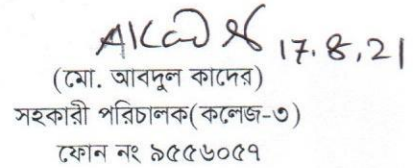 17.8.21
(মো. আবদুল কাদের)
সহকারী পরিচালক(কলেজ-৩)
ফোন নং ৯৫৫৬০৫৭